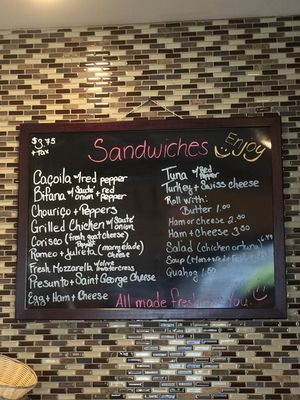 $3.75
+ Tax
Sandwiches
Enjoy
Caçoila w/red pepper
Bifana w/ Sauté onion + red pepper
Chouriço + Peppers
Grilled Chicken w/ Sauté onion
Corisco (fresh goat cheese Pepper)
Romeo + Julieta (marmelade cheese)
Fresh Mozzarella w/olive
Presunto + Saint George Cheese
Egg + Ham + Cheese
Tuna w/ Red Pepper
Turkey + Swiss cheese
Roll with:
Butter 1.00
Ham or cheese 2.50
Ham + cheese 3.50
Salad (chicken or tuna)
Soup
Quahog 1.50
All made fresh for You